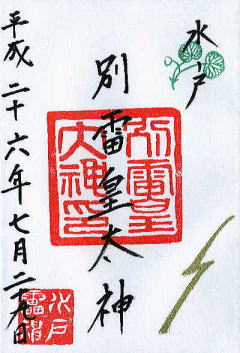 水戸
別雷皇太神
平成二十六年七月二九日
別雷皇
大神印
水戸
雷神